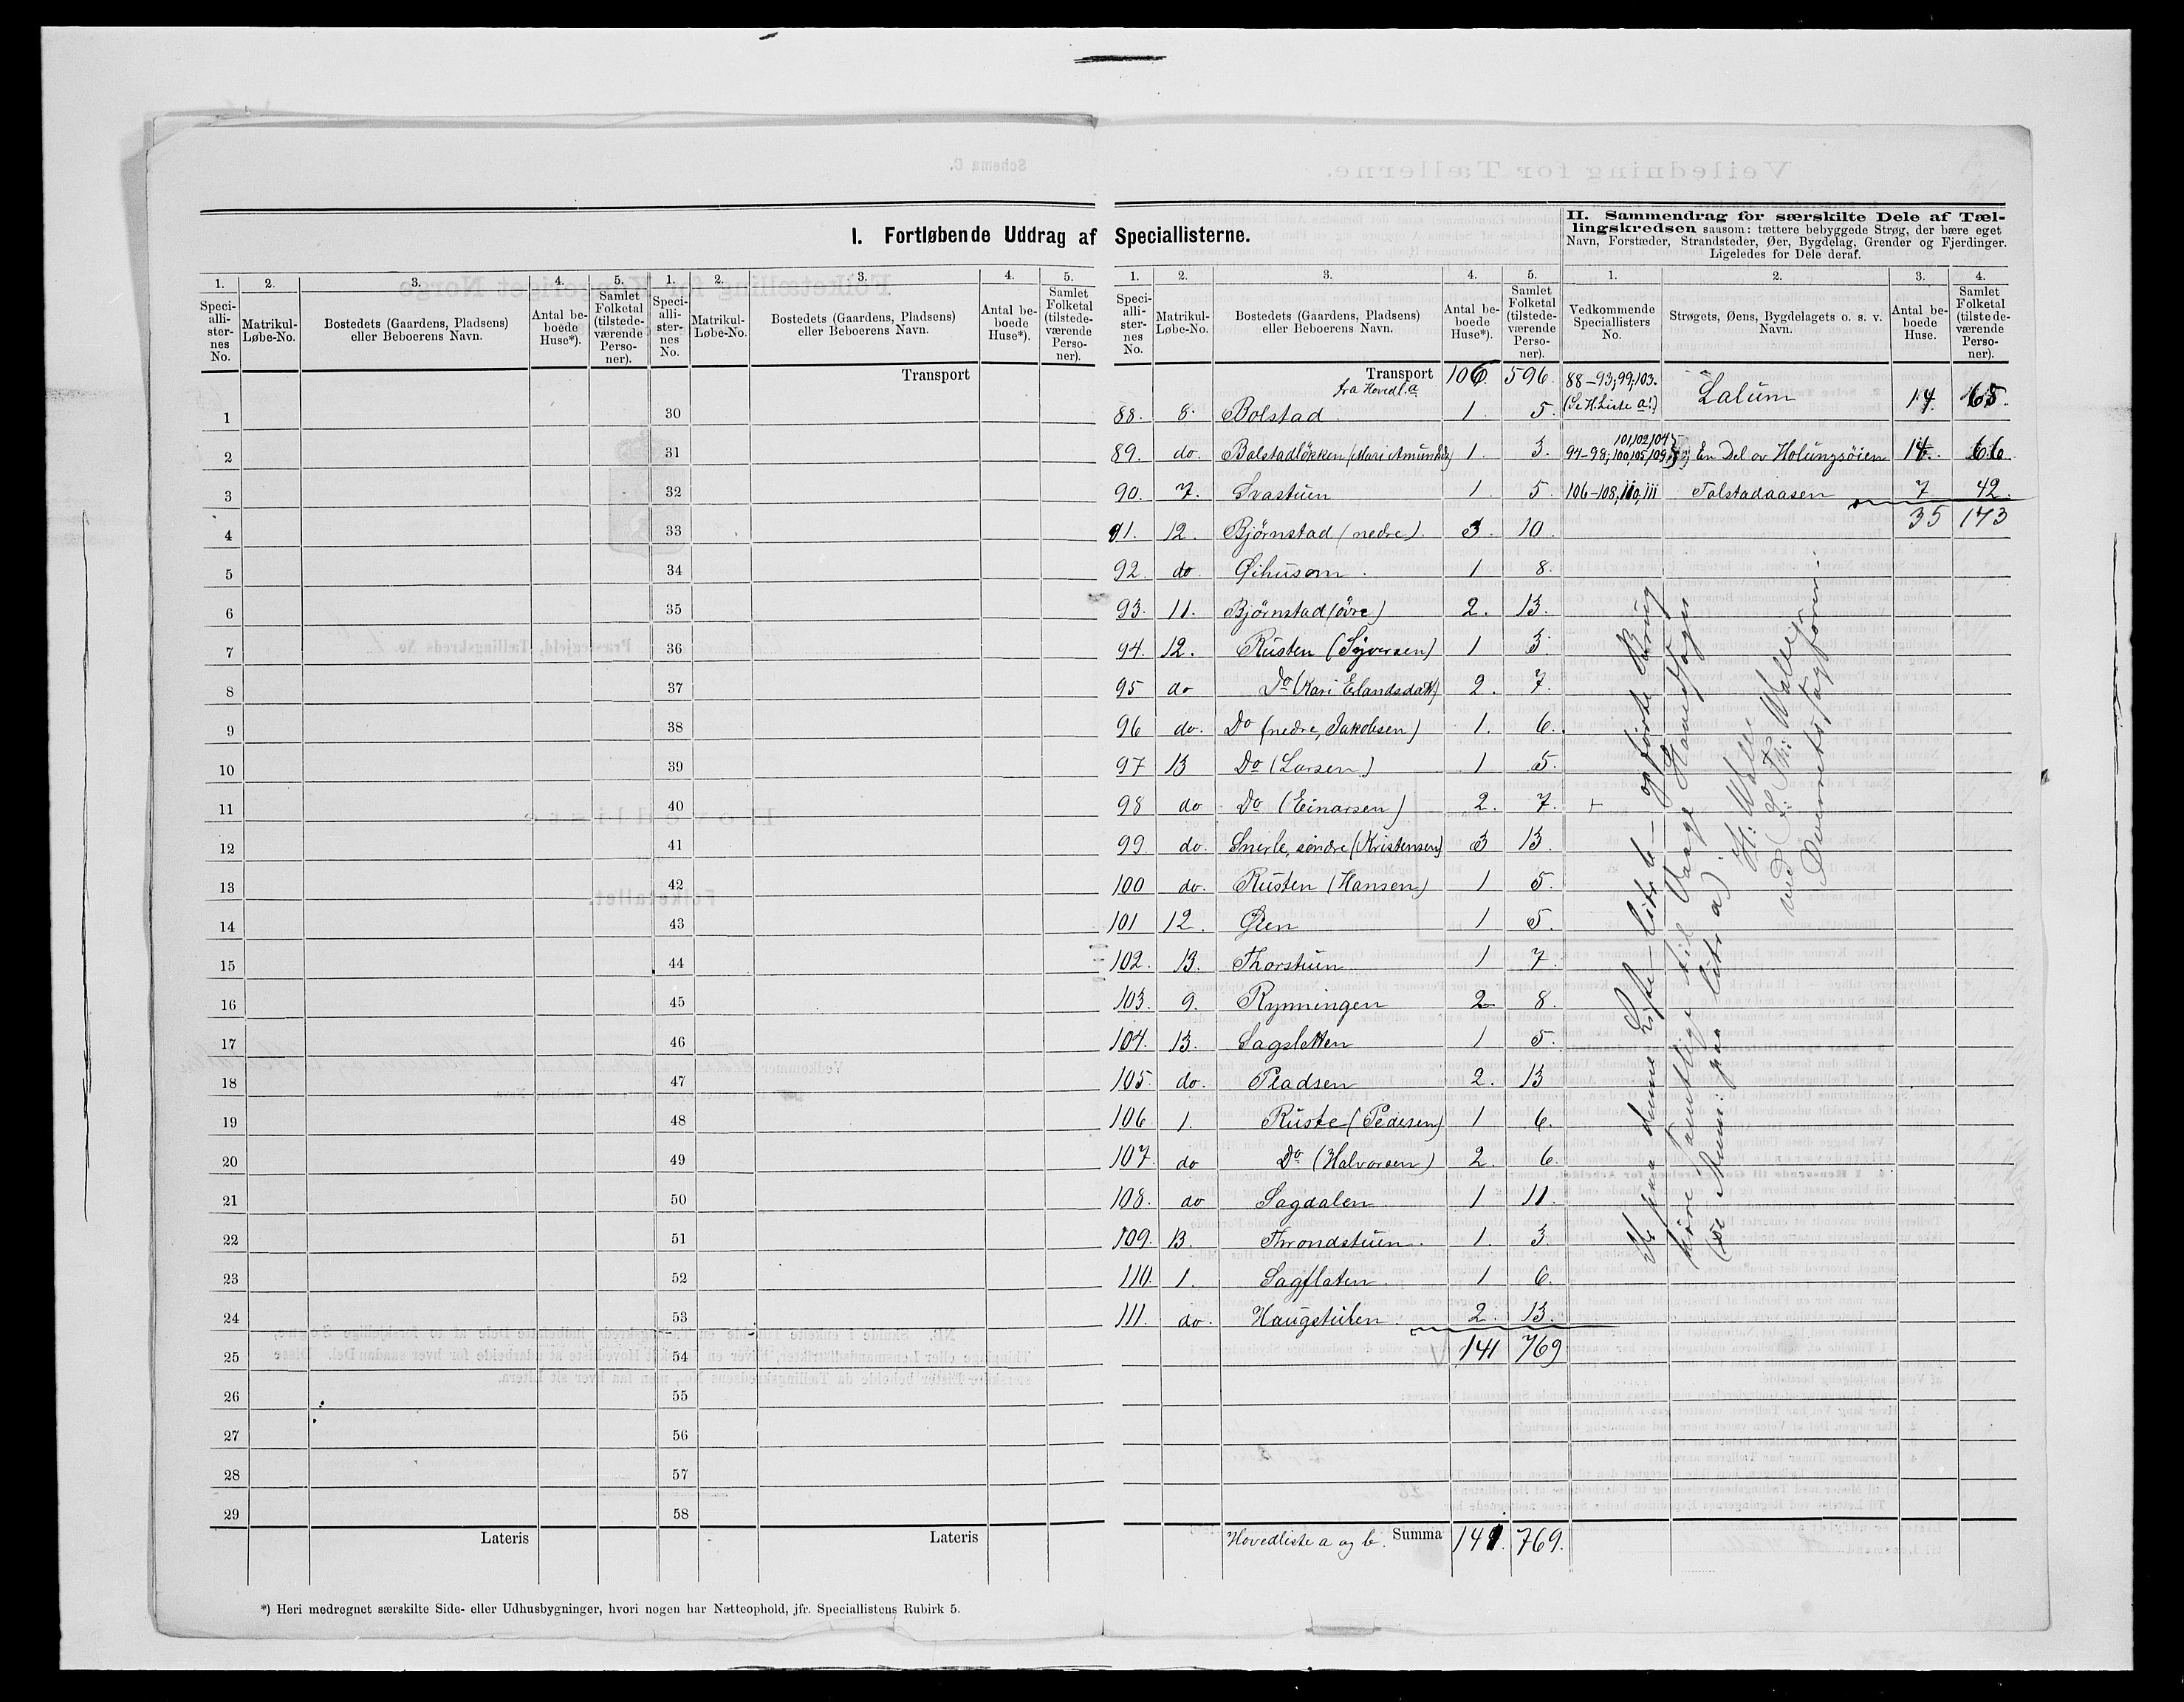 I. Fortløbende Uddrag af Speciallisterne.
II. Sammendrag for særskilte Dele af Tæl-
lingskredsen saasom: tættere bebyggede Strøg, der bære eget
Navn, Forstæder, Strandsteder, Øer, Bygdelag, Grender og Fjerdinger.
Ligeledes for Dele deraf.
1. 2. 3. 4. 5. 1. 2. 3. 4. 5.
Speci-alli-ster-nes No. Matrikul-Løbe-No. Bostedets (Gaardens, Pladsens) eller Beboerens Navn. Antal be-boede Huse*). Samlet Folketal (tilstede-værende Perso-ner).
Speci-alli-ster-nes No. Matrikul-Løbe-No. Bostedets (Gaardens, Pladsens) eller Beboerens Navn. Antal be-boede Huse*). Samlet Folketal (tilstede-værende Perso-ner).
Transport
1 30
2 31
3 32
4 33
5 34
6 35
7 36
8 37
9 38
10 39
11 40
12 41
13 42
14 43
15 44
16 45
17 46
18 47
19 48
20 49
21 50
22 51
23 52
24 53
25 54
26 55
27 56
28 57
29 58
Lateris Lateris
*) Heri medregnet særskilte Side- eller Udhusbygninger, hvori nogen har Natteophold, jfr. Speciallistens Rubirk 5.
1. 2. 3. 4. 5. 1. 2. 3. 4.
Speci-alli-ster-nes No. Matrikul-Løbe-No. Bostedets (Gaardens, Pladsens) eller Beboerens Navn. Antal be-boede Huse*). Samlet Folketal (tilstede-værende Perso-ner).
Vedkommende Speciallisters No. Strøgets, Øens, Bygdelagets o. s. v. Navn. Antal be-boede Huse. Samlet Folketal (tilstede-værende Perso-ner).
Transport 106. 596.
fra Hovedl. a
88. 8. Bolstad 1 5.
89. do. Bolstadløkken (Mari Amundsd) 1. 3.
90. 7. Svastuen 1. 5.
91. 12. Bjørnstad (nedre). 3. 10.
92. do. Øihusom. 1 8.
93. 11. Bjørnstad (övre) 2. 13.
94. 12. Rusten (Syversen) 1 3.
95 do Do (Kari Erlandsdatt) 2. 7.
96 do. Do (nedre, Jakobsen) 1. 6.
97 13 Do (Larsen) 1 5.
98 do Do (Einarsen) 2. 7.
99. do. Snerle, søndre (Kristensen) 3 13.
100 do. Rusten (Hansen) 1 5.
101 12. Øien 1 5.
102. 13. Thorstuen 1 7.
103. 9. Rynningen 2 8.
104. 13. Sagsletten 1 5.
105. do. Pladsen 2. 13
106 1. Ruste (Pedersen) 1 6.
107. do Do (Halvorsen) 2. 6.
108. do Sagdalen 1 11.
109. 13. Throndstuen. 1. 3.
110. 1. Sagflaten 1 6.
111. do. Haugstulen 2. 13.
141 769
Hovedliste a og b. Summa 141. 769.
88-93, 99, 103. (Se H.Liste a!) Lalum 14 65
94-98, 100, 101, 102, 104, 105, 109 En Del av Holungsøien 14. 66
106-108, 110, 111 Tolstadaasen 7 42.
35 173
De paa denne Liste - Litr b - opførte Brug
høre samtlige til Vaage Hovedsogn
(se Anm: paa Litr a)
H: Wolle